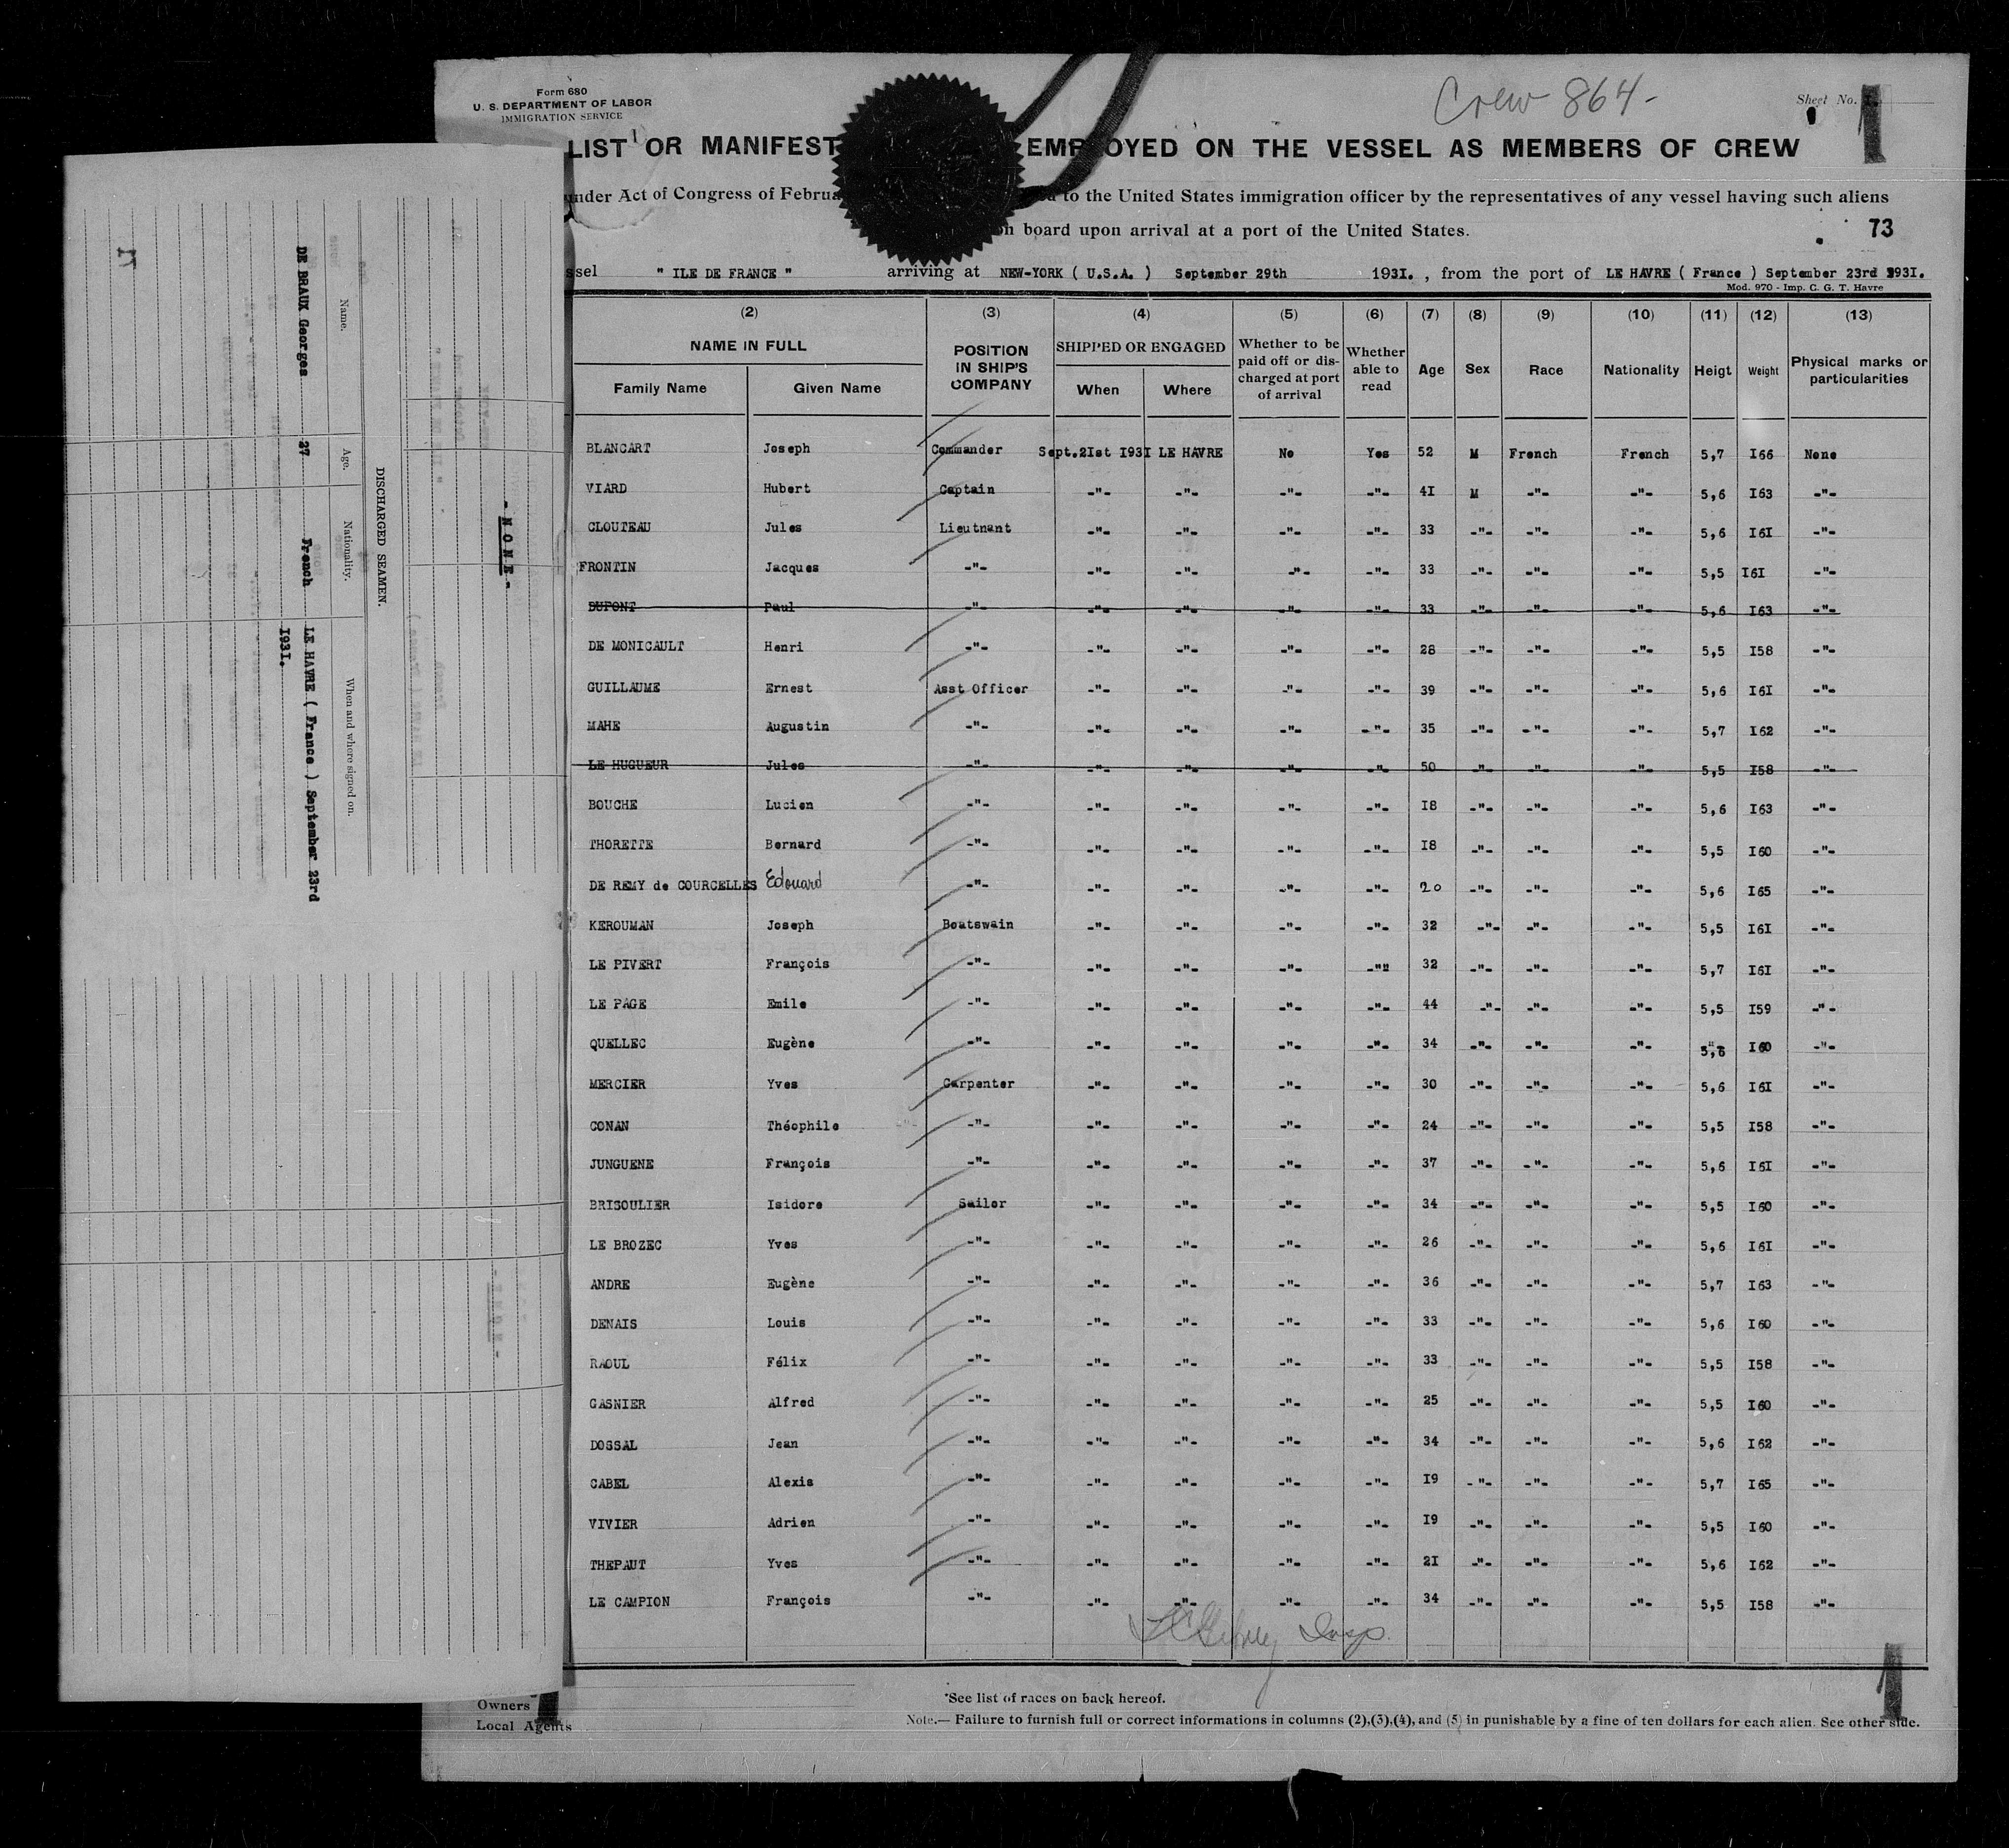 Form 680
U. S. DEPARTMENT OF LABOR
IMMIGRATION SERVICE
Crew 864-
Sheet No. 1
LIST OR MANIFEST EMPLOYED ON THE VESSEL AS MEMBERS OF CREW
under Act of Congress of Februa to the United States immigration officer by the representatives of any vessel having such aliens
on board upon arrival at a port of the United States.
73
ssel " ILE DE FRANCE " arriving at NEW-YORK ( U.S.A. ) September 29th 1931. , from the port of LE HAVRE ( France ) September 23rd 1931.
Mod. 970 - Imp. C. G. T. Havre
(2) (3) (4) (5) (6) (7) (8) (9) (10) (11) (12) (13)
NAME IN FULL POSITION IN SHIP'S COMPANY SHIPPED OR ENGAGED Whether to be paid off or discharged at port of arrival Whether able to read Age Sex Race Nationality Heigt Weight Physical marks or particularities
Family Name Given Name When Where
BLANCART Joseph Commander Sept.2Ist I93I LE HAVRE No Yes 52 M French French 5,7 I66 None
VIARD Hubert Captain -"- -"- -"- -"- 4I M -"- -"- 5,6 I63 -"-
CLOUTEAU Jules Lieutnant -"- -"- -"- -"- 33 -"- -"- -"- 5,6 I6I -"-
FRONTIN Jacques -"- -"- -"- -"- -"- 33 -"- -"- -"- 5,5 I6I -"-
DUPONT Paul -"- -"- -"- -"- -"- 33 -"- -"- -"- 5,6 I63 -"-
DE MONICAULT Henri -"- -"- -"- -"- -"- 28 -"- -"- -"- 5,5 I58 -"-
GUILLAUME Ernest Asst Officer -"- -"- -"- -"- 39 -"- -"- -"- 5,6 I6I -"-
MAHE Augustin -"- -"- -"- -"- -"- 35 -"- -"- -"- 5,7 I62 -"-
LE HUGUEUR Jules -"- -"- -"- -"- -"- 50 -"- -"- -"- 5,5 I58 -"-
BOUCHE Lucien -"- -"- -"- -"- -"- I8 -"- -"- -"- 5,6 I63 -"-
THORETTE Bernard -"- -"- -"- -"- -"- I8 -"- -"- -"- 5,5 I60 -"-
DE REMY de COURCELLES Edouard -"- -"- -"- -"- -"- 20 -"- -"- -"- 5,6 I65 -"-
KEROUMAN Joseph Boatswain -"- -"- -"- -"- 32 -"- -"- -"- 5,5 I6I -"-
LE PIVERT François -"- -"- -"- -"- -"" 32 -"- -"- -"- 5,7 I6I -"-
LE PAGE Emile -"- -"- -"- -"- -"- 44 -"- -"- -"- 5,5 I59 -"-
QUELLEC Eugène -"- -"- -"- -"- -"- 34 -"- -"- -"- 5,6 I60 -"-
MERCIER Yves Carpenter -"- -"- -"- -"- 30 -"- -"- -"- 5,6 I6I -"-
CONAN Théophile -"- -"- -"- -"- -"- 24 -"- -"- -"- 5,5 I58 -"-
JUNGUENE François -"- -"- -"- -"- -"- 37 -"- -"- -"- 5,6 I6I -"-
BRISOULIER Isidore Sailor -"- -"- -"- -"- 34 -"- -"- -"- 5,5 I60 -"-
LE BROZEC Yves -"- -"- -"- -"- -"- 26 -"- -"- -"- 5,6 I6I -"-
ANDRE Eugène -"- -"- -"- -"- -"- 36 -"- -"- -"- 5,7 I63 -"-
DENAIS Louis -"- -"- -"- -"- -"- 33 -"- -"- -"- 5,6 I60 -"-
RAOUL Félix -"- -"- -"- -"- -"- 33 -"- -"- -"- 5,5 I58 -"-
GASNIER Alfred -"- -"- -"- -"- -"- 25 -"- -"- -"- 5,5 I60 -"-
DOSSAL Jean -"- -"- -"- -"- -"- 34 -"- -"- -"- 5,6 I62 -"-
CABEL Alexis -"- -"- -"- -"- -"- I9 -"- -"- -"- 5,7 I65 -"-
VIVIER Adrien -"- -"- -"- -"- -"- I9 -"- -"- -"- 5,5 I60 -"-
THEPAUT Yves -"- -"- -"- -"- -"- 2I -"- -"- -"- 5,6 I62 -"-
LE CAMPION François -"- -"- -"- -"- -"- 34 -"- -"- -"- 5,5 I58 -"-
Insp.
Owners
Local Agents
*See list of races on back hereof.
Note.— Failure to furnish full or correct informations in columns (2),(3),(4), and (5) in punishable by a fine of ten dollars for each alien. See other side.
- NONE -
DISCHARGED SEAMEN.
Name. Age. Nationality. When and where signed on.
DE BRAUX Georges 27 French LE HAVRE ( France ) September 23rd
I93I.